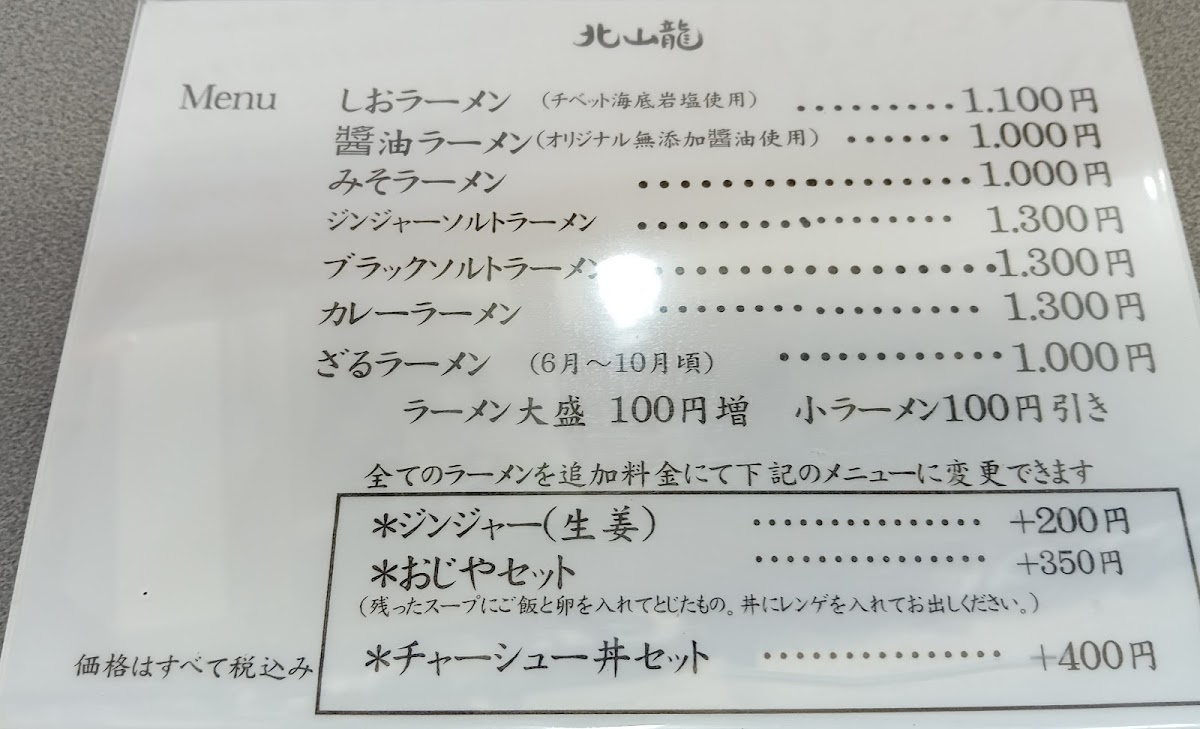 北山龍
Menu しおラーメン (チベット海底岩塩使用) ・・・・・・・・・1.100円
醬油ラーメン(オリジナル無添加醬油使用) ・・・・・・ 1.000円
みそラーメン ・・・・・・・・・・・・・・・・1.000円
ジンジャーソルトラーメン ・・・・・・・・・・・・・・・・ 1.300円
ブラックソルトラーメン ・・・・・・・・・・・・・・・・1.300円
カレーラーメン ・・・・・・・・・・・・・・・ 1.300円
ざるラーメン (6月〜10月頃) ・・・・・・・・・・・・1.000円
ラーメン大盛 100円増 小ラーメン100円引き
全てのラーメンを追加料金にて下記のメニューに変更できます
*ジンジャー(生姜) ・・・・・・・・・・・・・・・ +200円
*おじやセット ・・・・・・・・・・・・・・・ +350円
(残ったスープにご飯と卵を入れてとじたもの。丼にレンゲを入れてお出しください。)
*チャーシュー丼セット ・・・・・・・・・・・・・・・ +400円
価格はすべて税込み